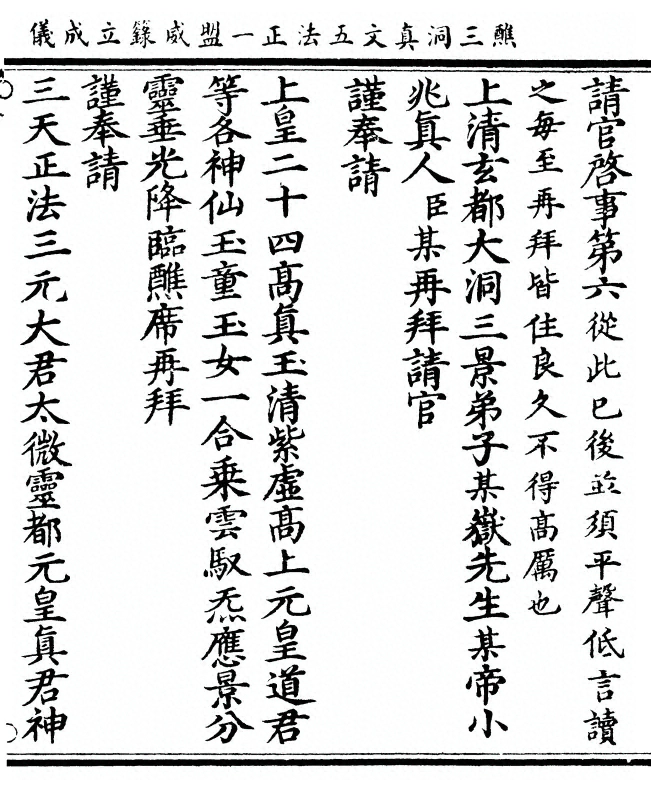 醮三洞真文五法正一盟威籙立成儀
請官啓事第六從此已後並須平聲低言讀
之每至再拜皆住良久不得高厲也
上清玄都大洞三景弟子某嶽先生某帝小
兆眞人臣某再拜請官
謹奉請
上皇二十四高眞玉清紫虛高上元皇道君
等各神仙玉童玉女一合乗雲馭炁應景分
靈垂光降臨醮席再拜
謹奉請
三天正法三元大君太微靈都元皇眞君神